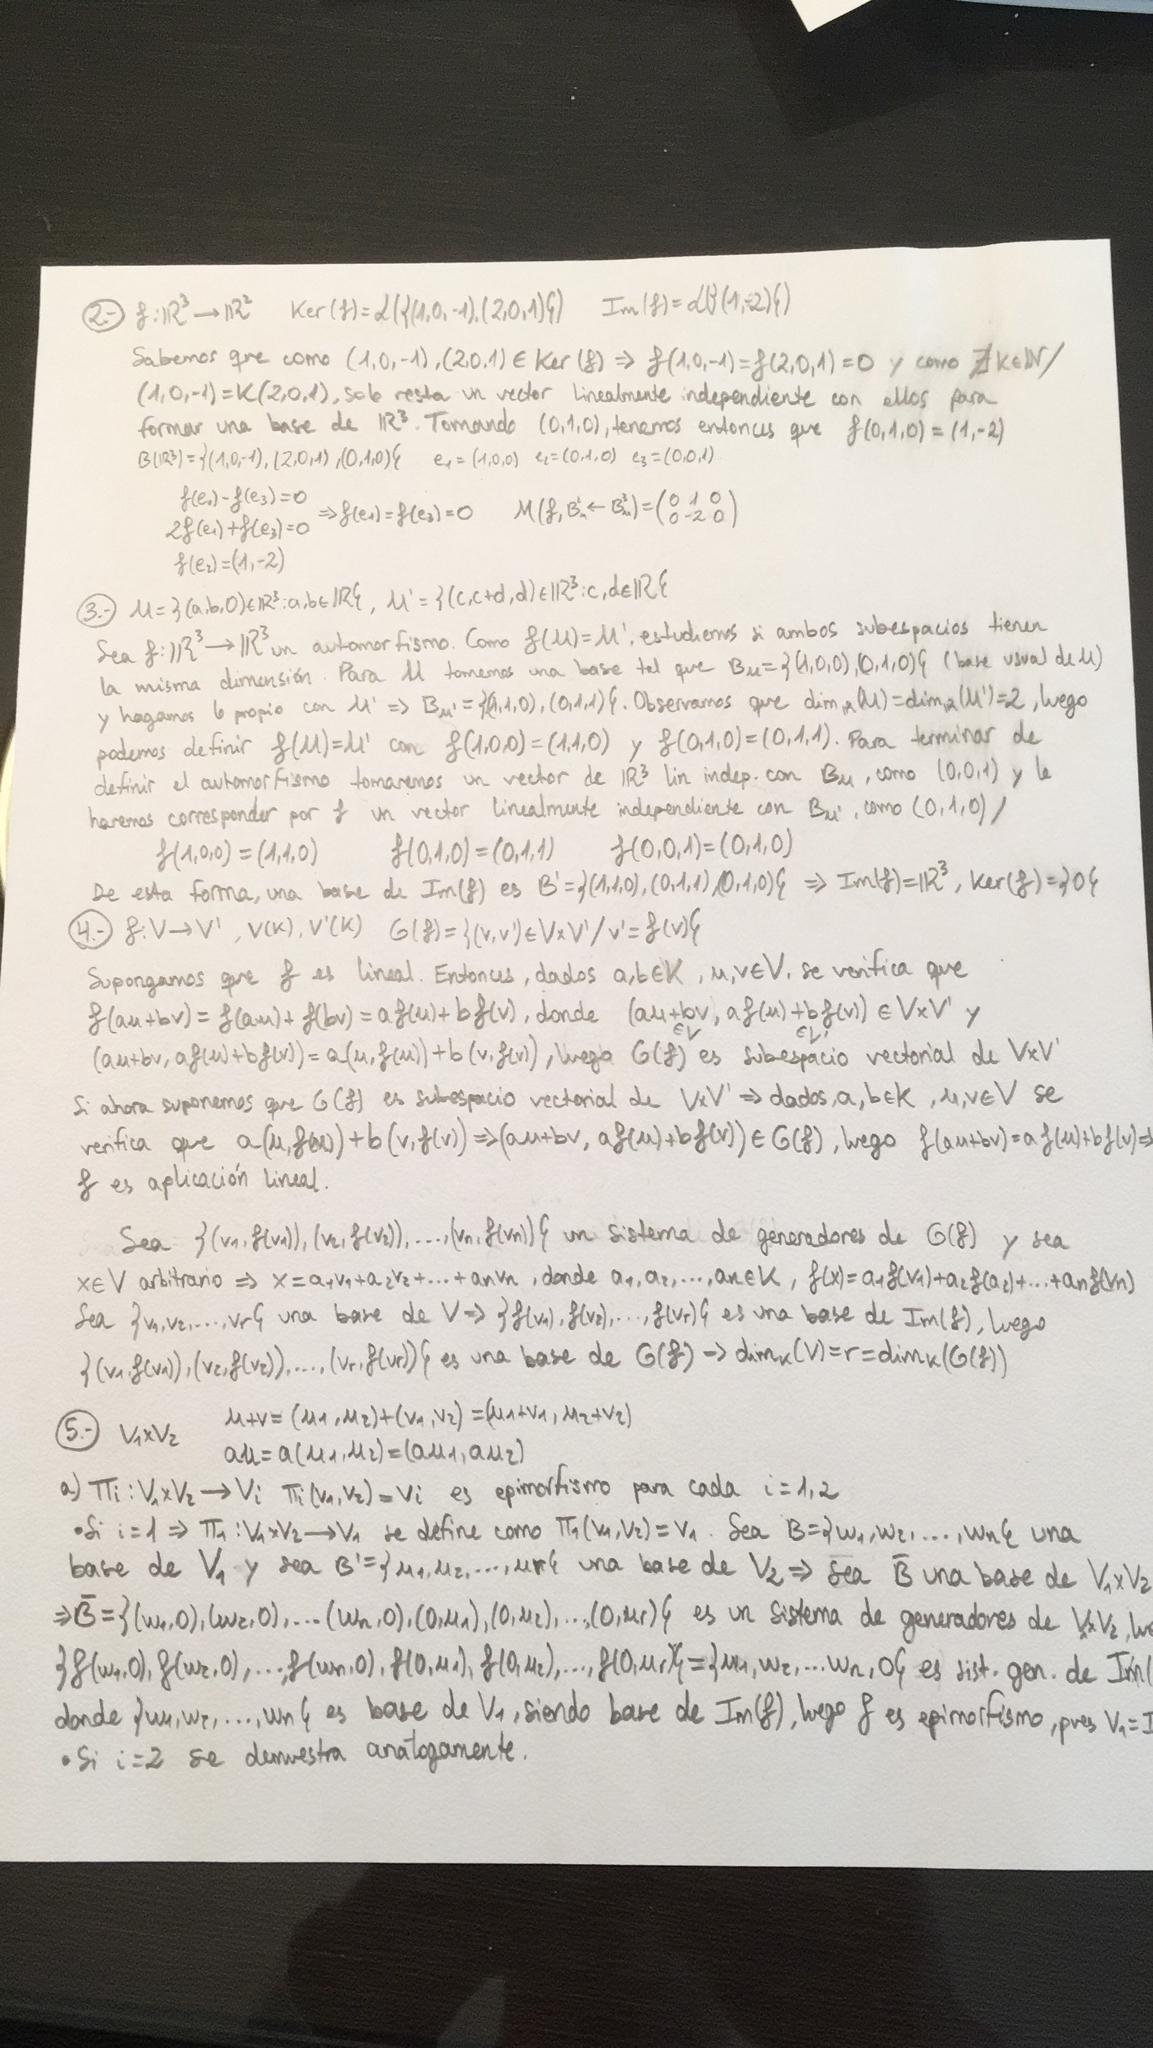 2.- f: ℝ³ → ℝ² Ker(f) = L({(1,0,-1),(2,0,1)}) Im(f) = L({(1,-2)})
Sabemos que como (1,0,-1),(2,0,1) ∈ Ker(f) ⇒ f(1,0,-1) = f(2,0,1) = 0 y como ∄ K∈ℕ /
(1,0,-1) = K(2,0,1), solo resta un vector linealmente independiente con ellos para
formar una base de ℝ³. Tomando (0,1,0), tenemos entonces que f(0,1,0) = (1,-2)
B(ℝ³) = {(1,0,-1),(2,0,1),(0,1,0)} e₁ = (1,0,0) e₂ = (0,1,0) e₃ = (0,0,1)
f(e₁) - f(e₃) = 0
2f(e₁) + f(e₃) = 0 ⇒ f(e₁) = f(e₃) = 0 M(f, Bu² ← Bu³) = (0 1 0
0 -2 0)
f(e₂) = (1,-2)
3.- U = {(a,b,0) ∈ ℝ³ : a,b ∈ ℝ}, U' = {(c,c+d,d) ∈ ℝ³ : c,d ∈ ℝ}
Sea f: ℝ³ → ℝ³ un automorfismo. Como f(U) = U', estudiemos si ambos subespacios tienen
la misma dimensión. Para U tomemos una base tal que Bu = {(1,0,0),(0,1,0)} (base usual de U)
y hagamos lo propio con U' ⇒ Bu' = {(1,1,0),(0,1,1)}. Observamos que dimℝ(U) = dimℝ(U') = 2, luego
podemos definir f(U) = U' con f(1,0,0) = (1,1,0) y f(0,1,0) = (0,1,1). Para terminar de
definir el automorfismo tomaremos un vector de ℝ³ lin indep. con Bu, como (0,0,1) y le
haremos corresponder por f un vector linealmente independiente con Bu', como (0,1,0) /
f(1,0,0) = (1,1,0) f(0,1,0) = (0,1,1) f(0,0,1) = (0,1,0)
De esta forma, una base de Im(f) es B' = {(1,1,0),(0,1,1),(0,1,0)} ⇒ Im(f) = ℝ³, Ker(f) = {0}
4.- f: V → V', V(K), V'(K) G(f) = {(v,v') ∈ V×V' / v' = f(v)}
Supongamos que f es lineal. Entonces, dados a,b∈K, u,v∈V, se verifica que
f(au+bv) = f(au) + f(bv) = a f(u) + b f(v), donde (au+bv, a f(u) + b f(v)) ∈ V×V' y
∈V ∈V'
(au+bv, a f(u) + b f(v)) = a(u,f(u)) + b(v,f(v)), luego G(f) es subespacio vectorial de V×V'
Si ahora suponemos que G(f) es subespacio vectorial de V×V' ⇒ dados, a,b∈K, u,v∈V se
verifica que a(u,f(u)) + b(v,f(v)) ⇒ (au+bv, a f(u) + b f(v)) ∈ G(f), luego f(au+bv) = a f(u) + b f(v) ⇒
f es aplicación lineal.
Sea {(v₁,f(v₁)),(v₂,f(v₂)),...,(vn,f(vn))} un sistema de generadores de G(f) y sea
x∈V arbitrario ⇒ x = a₁v₁ + a₂v₂ + ... + anvn, donde a₁,a₂,...,an∈K, f(x) = a₁f(v₁) + a₂f(a₂) + ... + anf(vn)
Sea {v₁,v₂,...,vr} una base de V ⇒ {f(v₁),f(v₂),...,f(vr)} es una base de Im(f), luego
{(v₁,f(v₁)),(v₂,f(v₂)),...,(vr,f(vr))} es una base de G(f) ⇒ dimK(V) = r = dimK(G(f))
5.- V₁×V₂ u+v = (u₁,u₂) + (v₁,v₂) = (u₁+v₁, u₂+v₂)
au = a(u₁,u₂) = (au₁,au₂)
a) Πi : V₁×V₂ → Vi Πi(v₁,v₂) = vi es epimorfismo para cada i = 1,2
• Si i=1 ⇒ Π₁ : V₁×V₂ → V₁ se define como Π₁(v₁,v₂) = v₁. Sea B = {w₁,w₂,...,wn} una
base de V₁ y sea B' = {u₁,u₂,...,ur} una base de V₂ ⇒ Sea B̄ una base de V₁×V₂
⇒ B̄ = {(w₁,0),(w₂,0),...(wn,0),(0,u₁),(0,u₂),...,(0,ur)} es un sistema de generadores de V₁×V₂,
{f(w₁,0),f(w₂,0),...,f(wn,0),f(0,u₁),f(0,u₂),...,f(0,ur)} = {w₁,w₂,...wn,0} es sist. gen. de Im(
donde {w₁,w₂,...,wn} es base de V₁, siendo base de Im(f), luego f es epimorfismo, pues V₁ = I
• Si i=2 se demuestra análogamente.